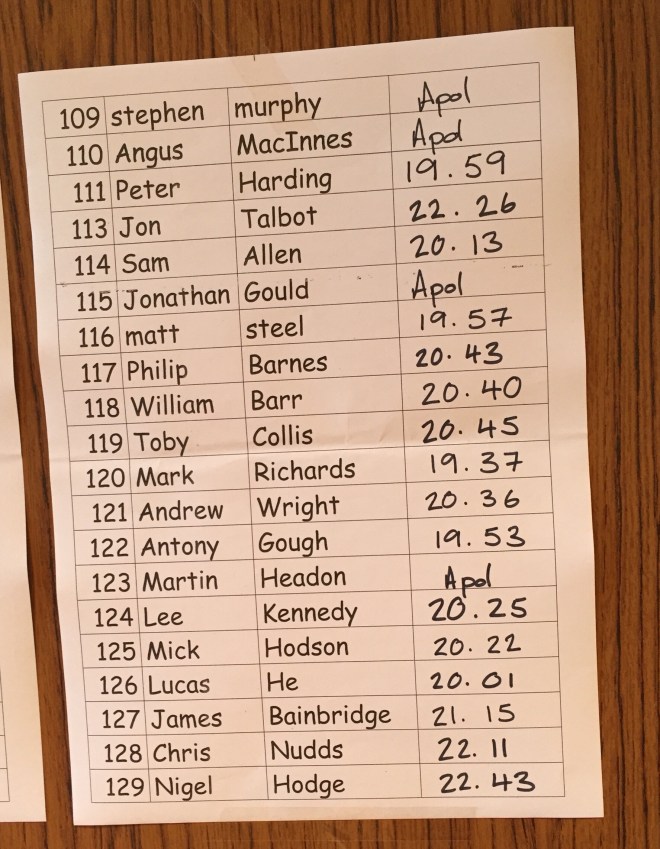 109 stephen murphy Apol
110 Angus MacInnes Apol
111 Peter Harding 19.59
113 Jon Talbot 22.26
114 Sam Allen 20.13
115 Jonathan Gould Apol
116 matt steel 19.57
117 Philip Barnes 20.43
118 William Barr 20.40
119 Toby Collis 20.45
120 Mark Richards 19.37
121 Andrew Wright 20.36
122 Antony Gough 19.53
123 Martin Headon Apol
124 Lee Kennedy 20.25
125 Mick Hodson 20.22
126 Lucas He 20.01
127 James Bainbridge 21.15
128 Chris Nudds 22.11
129 Nigel Hodge 22.43